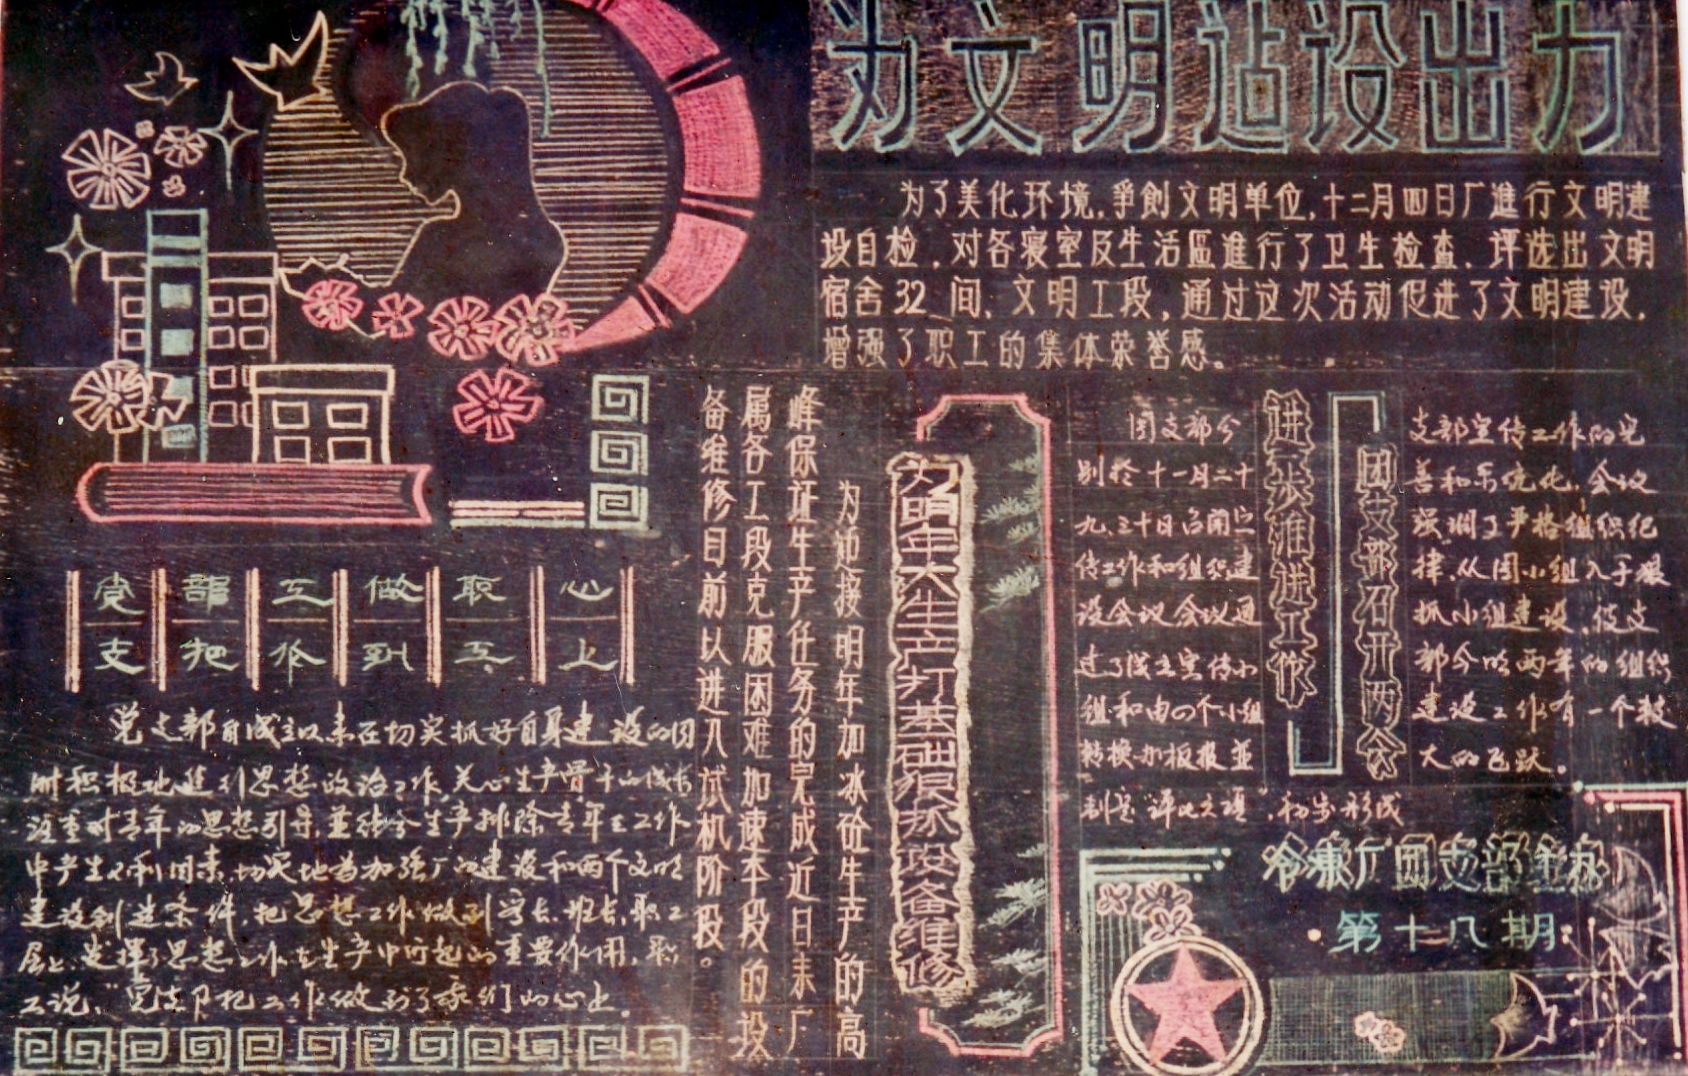 为文明建设出力
为了美化环境，争創文明单位，十二月四日厂進行文明建
设自检，对各寝室及生活區進行了卫生检查，评选出文明
宿舍32间，文明工段，通过这次活动促进了文明建设，
增强了职工的集体荣誉感。
党支部把工作做到职工心上
党支部自成立以来在切实抓好自身建设的同
时积极地進行思想政治工作，关心生产骨干的成长
注重对青年的思想引导，並结合生产排除青年工工作
中产生不利因素，切实地为加强厂的建设和两个文明
建设創造条件，把思想工作做到学长、班长，职工
层上，发挥了思想工作在生产中所起的重要作用，职
工说，“党支部把工作做到了我们的心上。
为明年大生产打基础狠抓设备维修
为迎接明年加冰砼生产的高
峰保证生产任务的完成近日来厂
属各工段克服困难加速本段的设
备维修目前以进入试机阶段。
进一步推进工作
团支部召开两会
团支部分
别於十一月二十
九、三十日召開宣
传工作和组织建
设会议会议通
过了成立宣传小
组和由四个小组
转换办板报並
制定“评比六项”，初步形成
支部宣传工作的完
善和系统化，会议
强调了严格组织纪
律，从团小组入手狠
抓小组建设，使支
部今明两年的组织
建设工作有一个较
大的飞跃。
厂团支部主办
第十八期